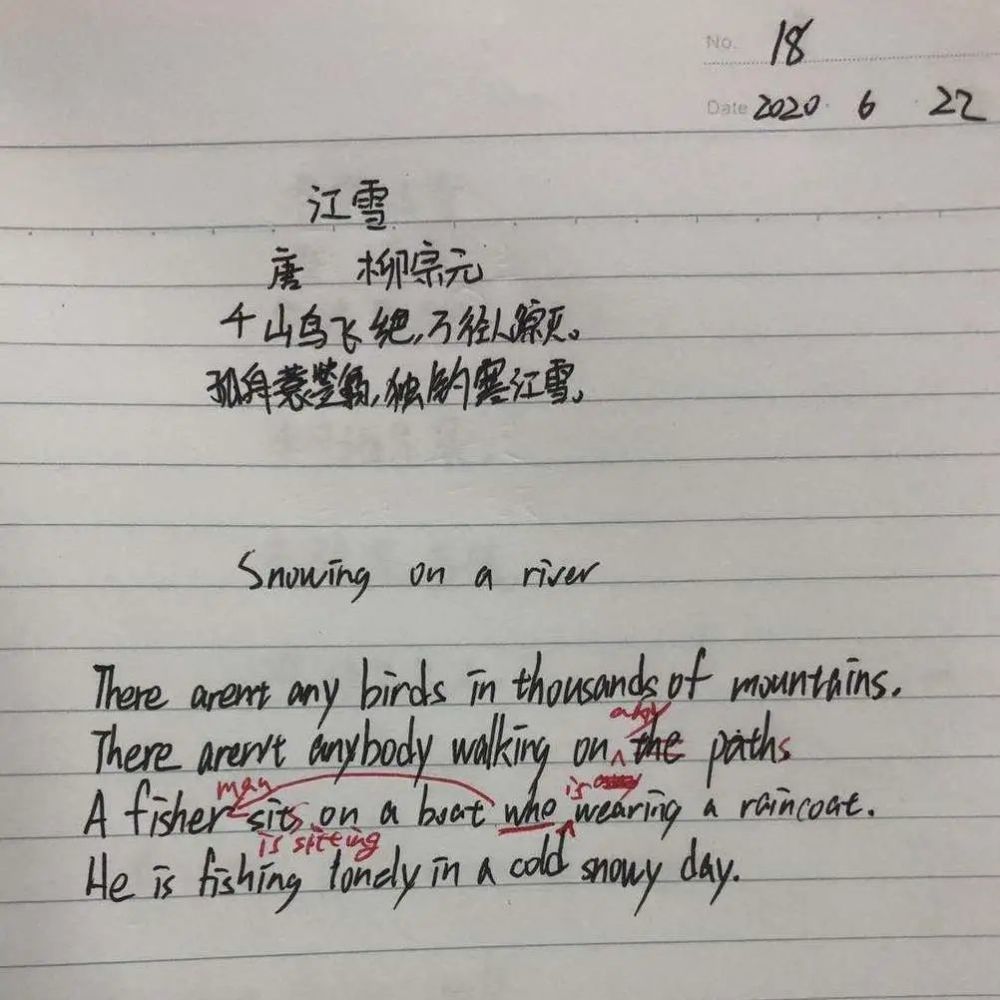 No. 18
Date 2020 6 22
江雪
唐 柳宗元
千山鸟飞绝,万径人踪灭。
孤舟蓑笠翁,独钓寒江雪。
Snowing on a river
There aren't any birds in thousands of mountains.
any
There aren't anybody walking on the paths
man is
A fisher sits on a boat who wearing a raincoat.
is sitting
He is fishing lonely in a cold snowy day.